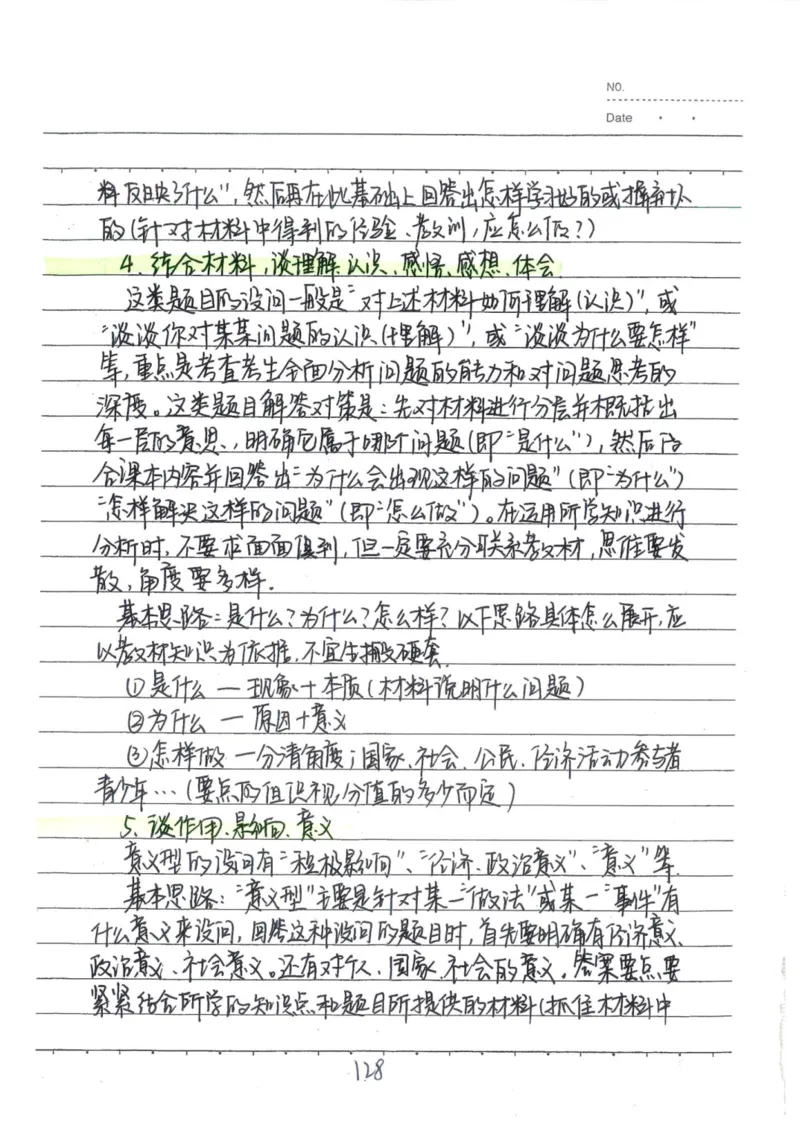 NO.
Date
料反映了什么"，然后再在此基础上回答出怎样学习好的或摒弃坏
的(针对材料中得到的经验、教训，应怎么做？)
4、结合材料，谈理解、认识、感悟、感想、体会
这类题目的设问一般是"对上述材料如何理解(认识)"，或
"谈谈你对某某问题的认识(理解)"，或"谈谈为什么要怎样"
等，重点是考查考生全面分析问题的能力和对问题思考的
深度。这类题目解答对策是：先对材料进行分层并概括出
每一层的意思，明确它属于哪个问题(即"是什么")，然后结
合课本内容并回答出"为什么会出现这样的问题"(即"为什么")
"怎样解决这样的问题"(即"怎么做")。在运用所学知识进行
分析时，不要求面面俱到，但一定要充分联系教材，思维要发
散，角度要多样.
基本思路：是什么？为什么？怎么样？以下思路具体怎么展开，应
以教材知识为依据，不宜生搬硬套.
①是什么 — 现象+本质(材料说明什么问题)
②为什么 — 原因+意义
③怎样做 — 分清角度；国家、社会、公民、经济活动参与者
青少年…(要点的组织视分值的多少而定)
5、谈作用、影响、意义
意义型的设问有"积极影响"、"经济、政治意义"、"意义"等.
基本思路："意义型"主要是针对某一"做法"或某一"事件"有
什么意义来设问，回答这种设问的题目时，首先要明确有经济意义、
政治意义、社会意义。还有对个人、国家、社会的意义。答案要点要
紧紧结合所学的知识点和题目所提供的材料(抓住材料中
128